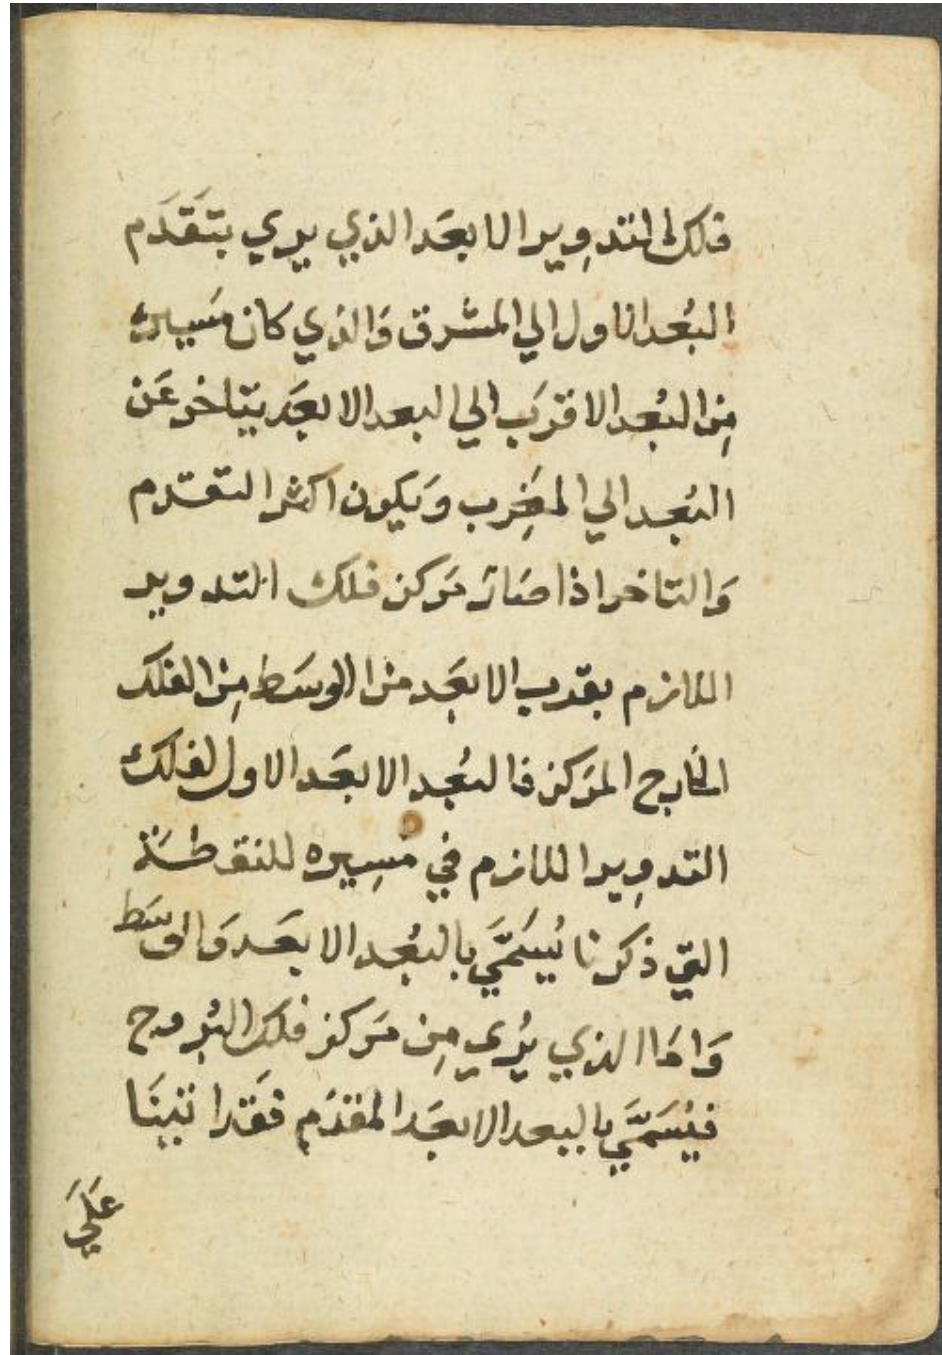 فلك التدوير الابعَد الذي يري بتَقَدَم
البُعد الاول الي المشرق وَالذي كان مَسيره
مِن البُعد الاقرَب الي البعد الابعَد يتاخر عَن
البُعد الي المغِرب وَيكون اكثر التقدم
وَالتاخر اذا صَار مَركز فلك التدوير
اللازم بقرب الابعَد من الاوسَط مِن الفلك
الخارج المرَكز فالبُعد الابعَد الاول لفلك
التدوِير اللازم في مَسِيره للنقطَة
التي ذكرنا يُسَمَّي بالبُعد الابعَد وَالاوسَط
وَامَا الذي يُري مِن مَركز فلك البُروج
فيُسَمَّي بالبعد الابعَد المقدَم فقَد اتينَا
عَلَي